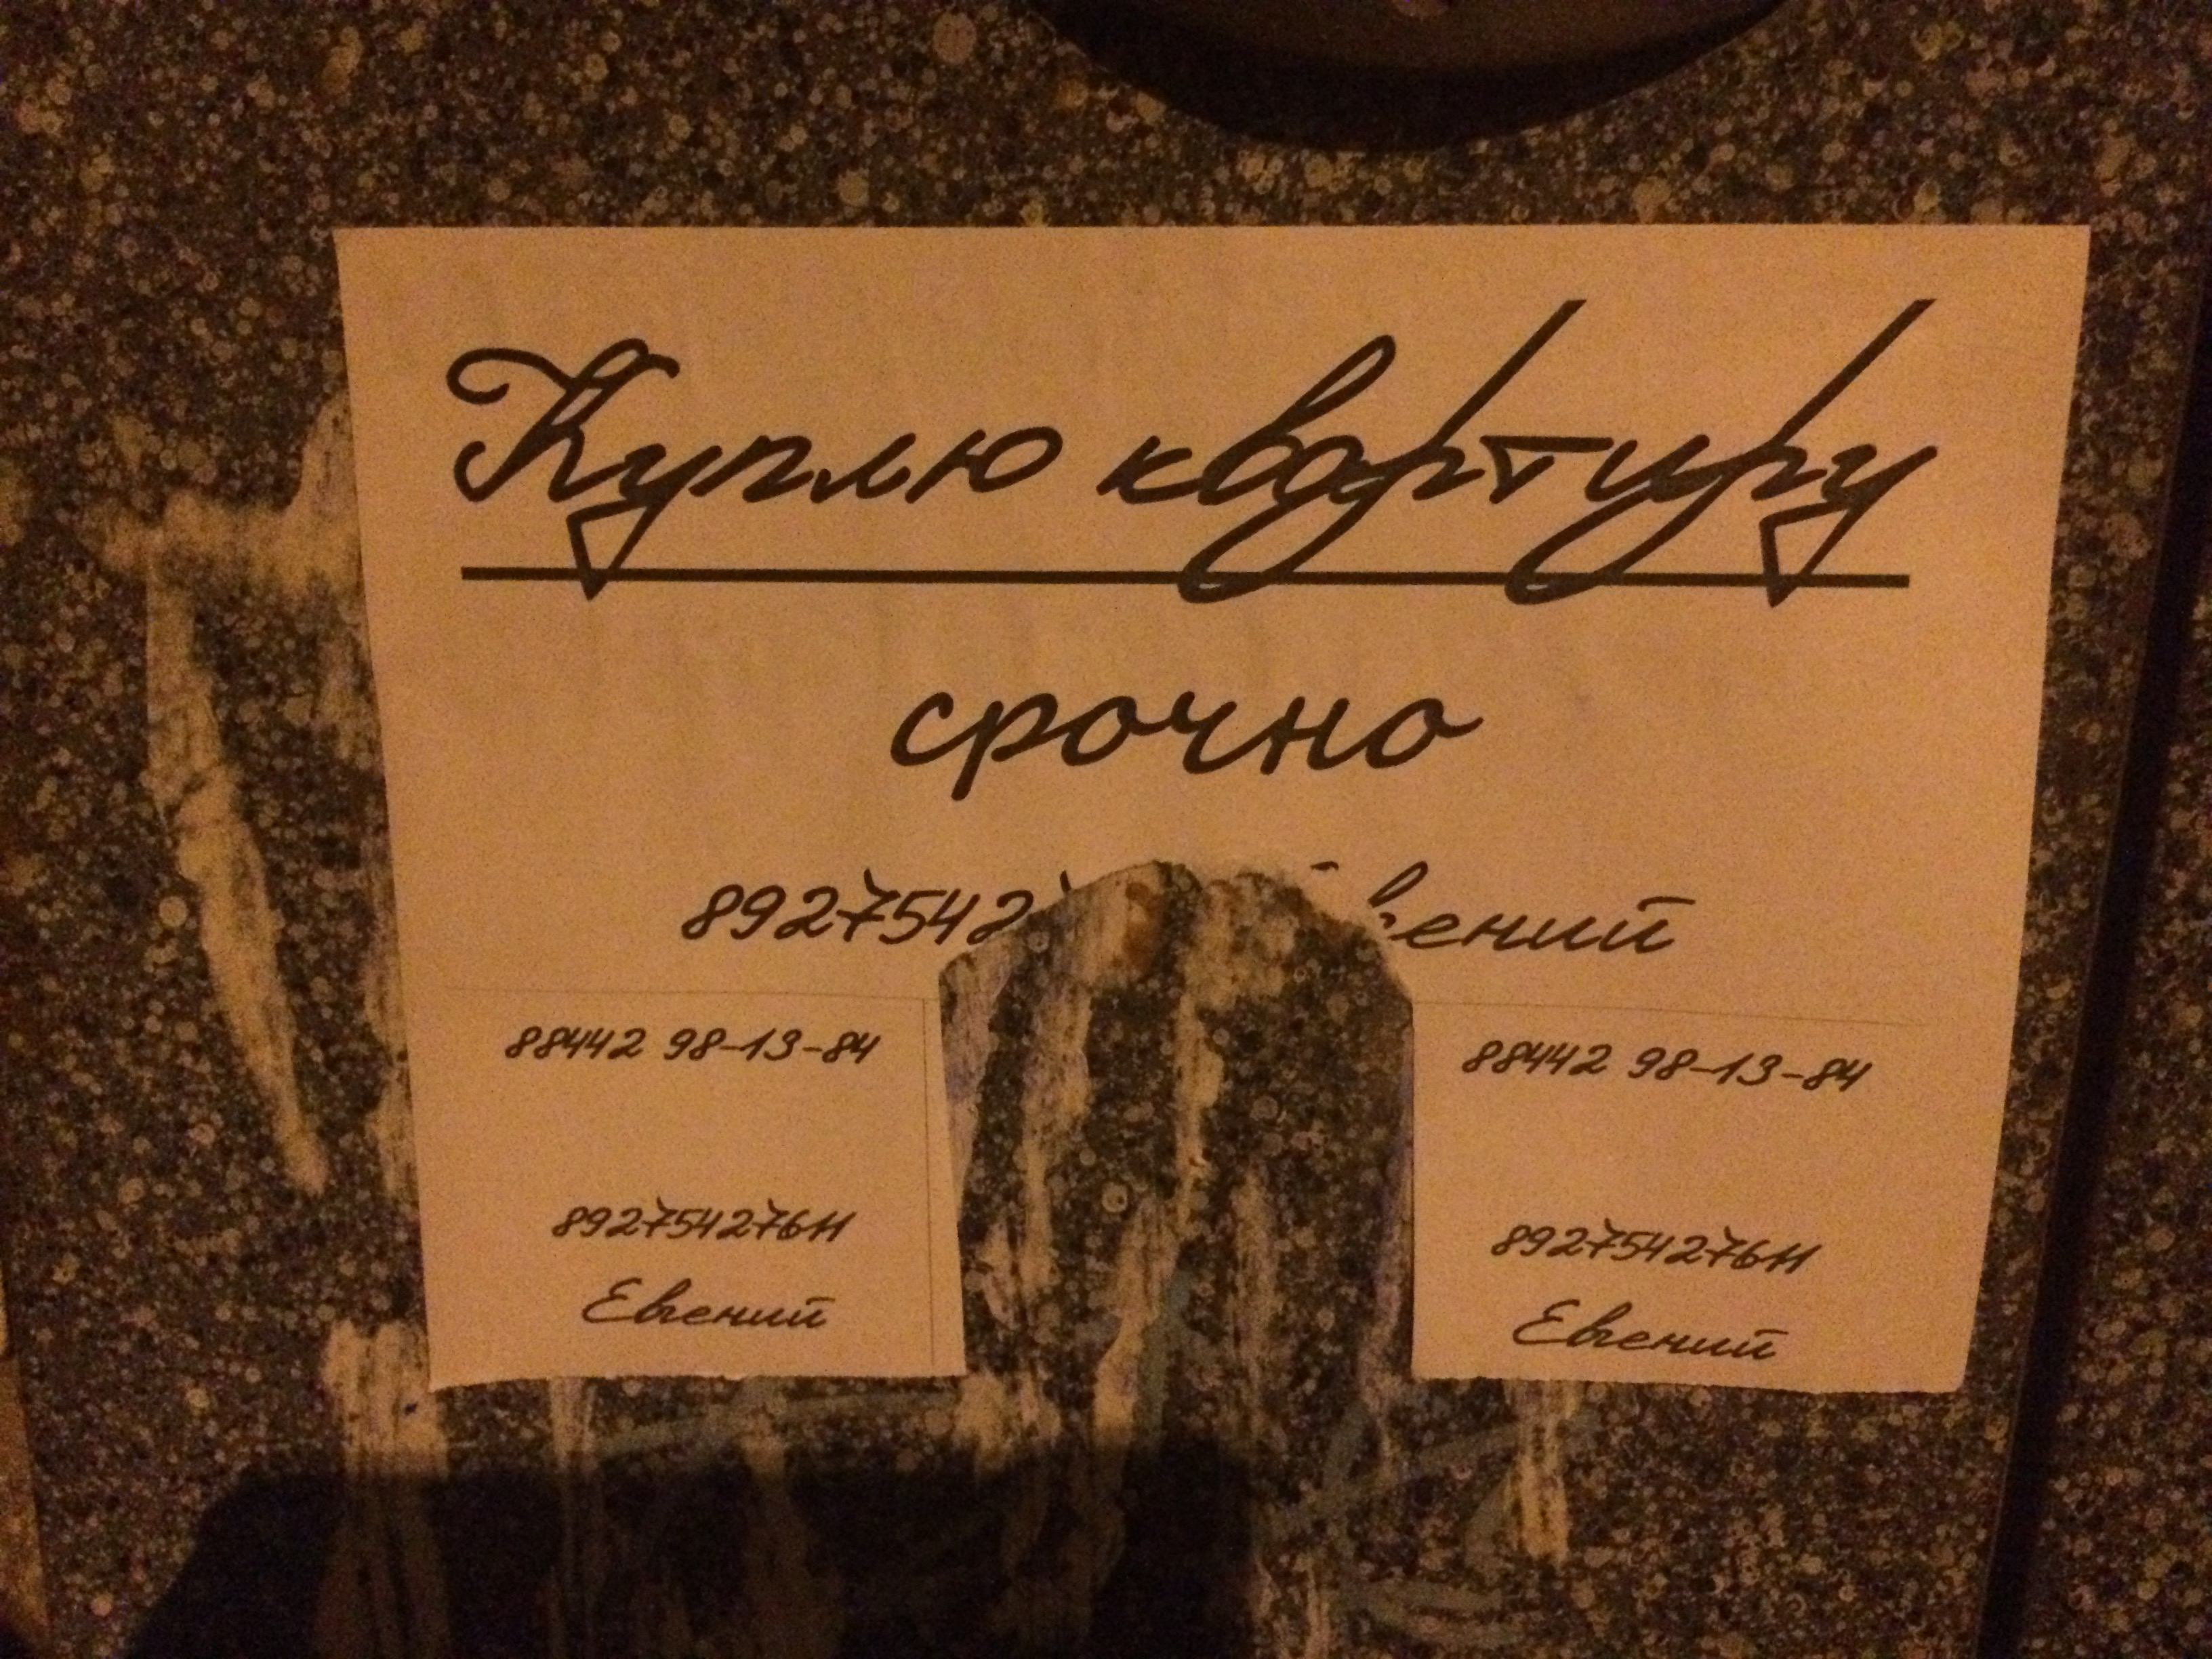 Куплю квартиру
срочно
8927542
88442 98-13-84
89275427611
Евгений
88442 98-13-84
89275427611
Евгений